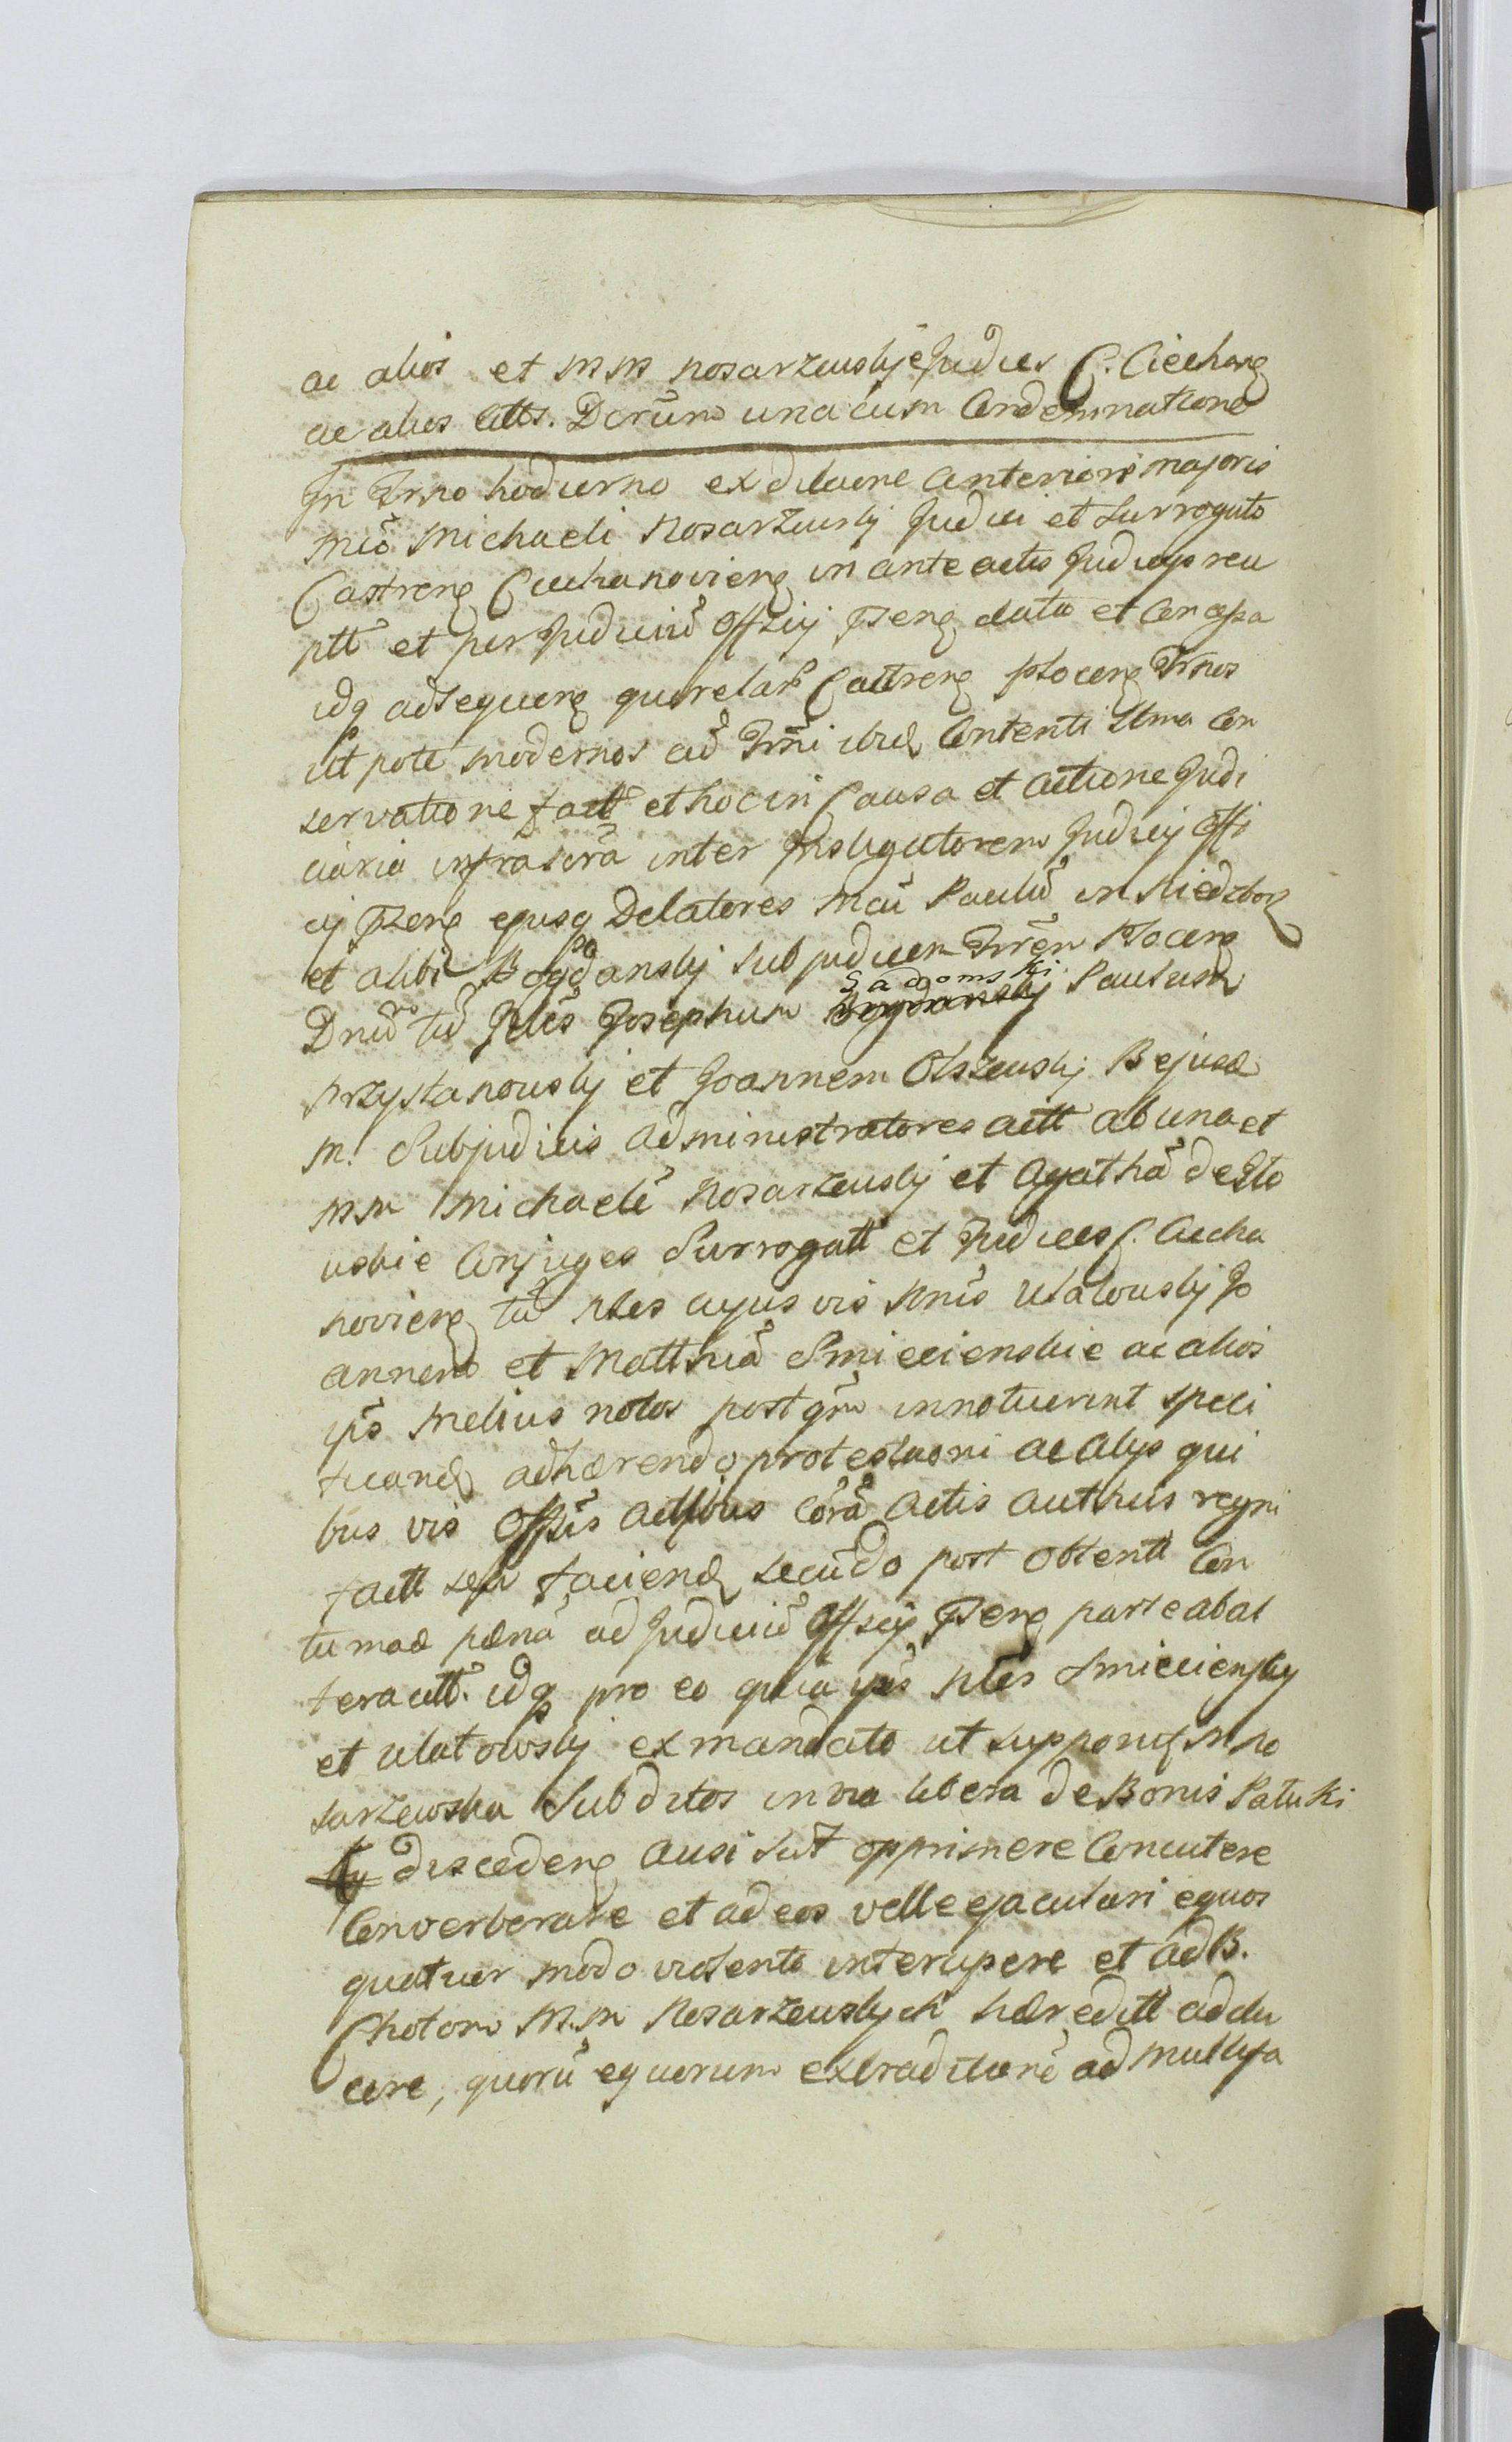 ac alios et M M Nosarzewskie Judices C. Ciechang
ac alios Citts. Dcrūm una cum Condemnatione
In Trno hodierno ex dilaone anteriori majoris
Mcō Michaeli Nosarzewskj Judici et Surrogato
Castreng Ciechanovieng in anteactis Judicys
ptt et per Judiciū Offcij Pzeng data et Concessa
idq adsequeng querelar Castreng Ploceng Trnos
ut pote modernos ad Trmi ibid Contenti Conservatione
servatione factt et hoc in Causa et actione Judi
ciaria infrascrā inter Instigatorem Judicij Offi
cij Pzeng ejusq Delatores Mcū Paulū in Niedzborz
et alibi Bogdanskj Subjudicem Trrēm Ploceng
Dnū tū Josephum Sadomski Paulum
Przystanowskj et Joannem Olszewskj B ejusd
M. Subjudicis administratores actt ab una et
M M Michaelē Nosarzewskj et Agathā de Sto
wskie Conjuges Surrogatt et Judices C. Ciecha
novieng tū Nles cujus vis Nnis Ulatowskj Jo
annem et Matthiā Smiecienskie ac alios
ips melius notos postqm innotuerint speci
ficand adhærendo protestaoni ac alys qui
bus vis Offsis actibus Corā Actis Authcis regni
factt seu faciend secūdo post obtentt Con
tumac pænā ad Judiciū Offcij Pzeng parte ab al
tera citt. idq pro eo quia ipsi Nles Smiecienscy
et Ulatowskj ex mandato ut supponit M No
sarzewska Subditos in via libera de Bonis Patuki
discedeng ausi sūt opprimere Concutere
Converberare et ad eos velle ejaculari equos
quatuor modo violento interripere et ad B.
Choton M.M Nosarzewskych hæreditt addu
cere, quorū equorum extraditionē ad multifa